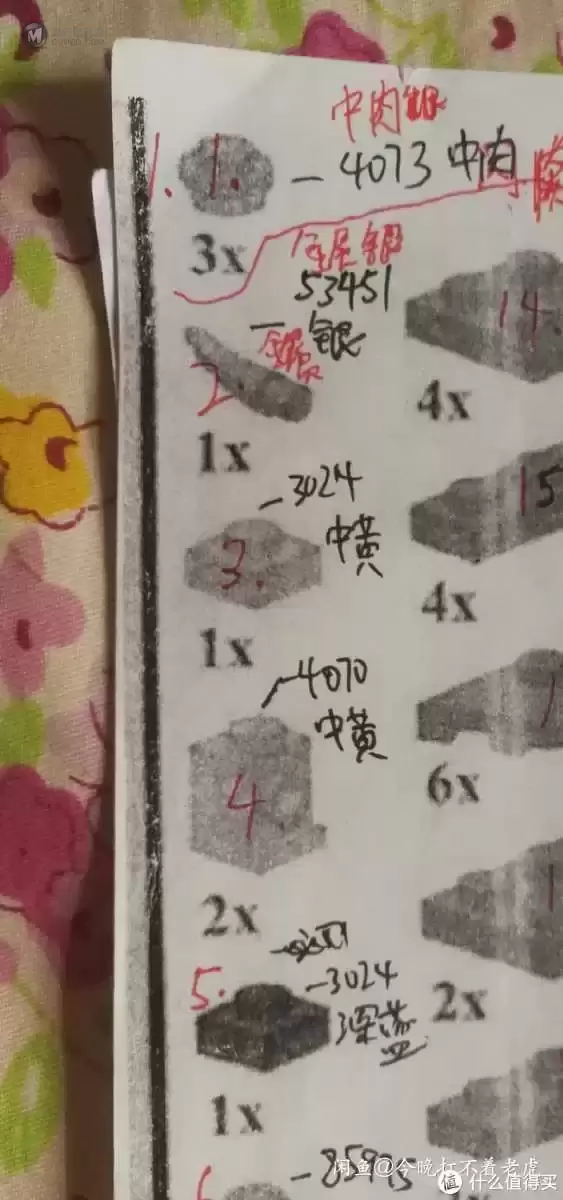 中肉银
1. 1. - 4073 中肉
3x
金属银
53451
银
2.
1x
14.
4x
-3024
3. 中黄
1x
15
4x
4070
4 中黄
2x
6x
5. -3024
深蓝
1x
2x
闲鱼@今晚打不着老虎
值 什么值得买